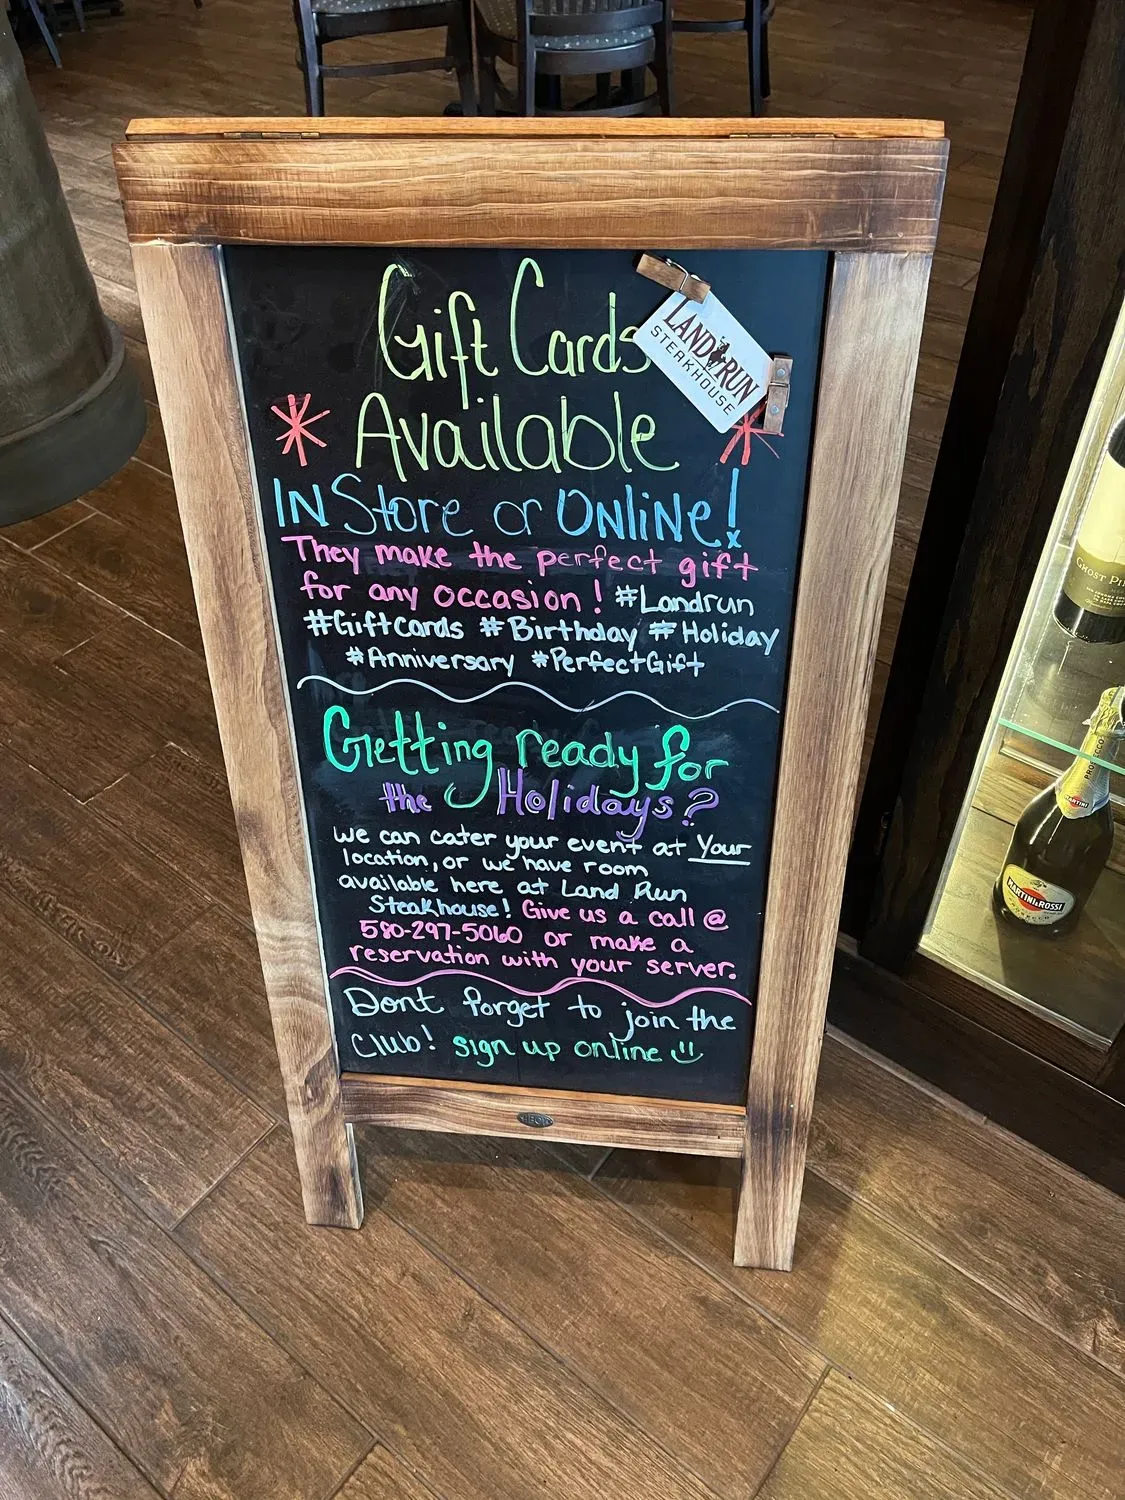 Gift Cards
LAND RUN
STEAKHOUSE
Available
IN Store or ONliNe!
They make the perfect gift
for any occasion! #Landrun
#Giftcards #Birthday #Holiday
#Anniversary #PerfectGift
Getting ready for
the Holidays?
We can cater your event at Your
location, or we have room
available here at Land Run
Steakhouse! Give us a call @
580-297-5060 or make a
reservation with your server.
Dont forget to join the
Club! sign up online
PROSECCO
MARTINI
MARTINI & ROSSI